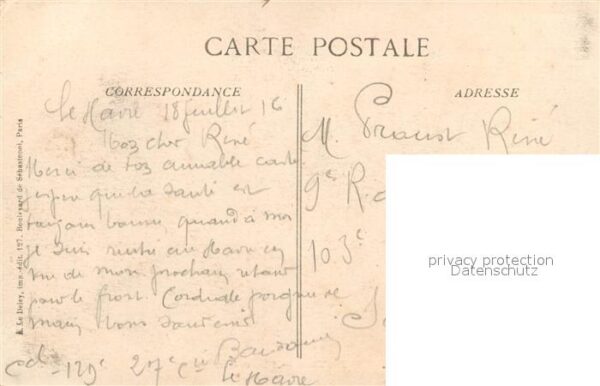 CARTE POSTALE
CORRESPONDANCE
Le Havre 18 juillet 16
Mon cher René
Merci de ton aimable carte
j'espère que ta santé est
toujours bonne, quand à moi
je suis rentré au Havre en
vue de mon prochain retour
pour le front. Cordiale poignée de
main
27e Cie
Le Havre
ADRESSE
M. René
9e R.
103e
E. Le Deley, imp.-édit. 127, Boulevard de Sébastopol, Paris
privacy protection
Datenschutz